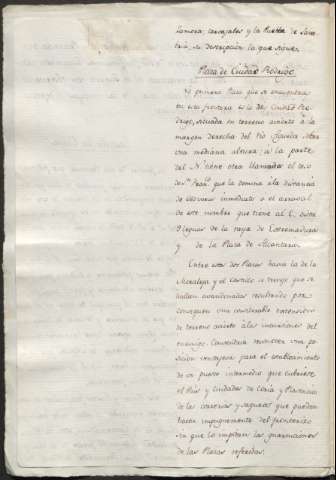 Zamora, carvajales y la Puebla de Sana-
bria, su descripcion la que sigue.
Plaza de Ciudad Rodrigo
La primera Plaza que se encuentra
en esta frontera es la de Ciudad Ro-
drigo, situada en terreno á la
margen derecha del rio sobre
una mediana altura; á la parte
del N. tiene otra llamada el teso
de Sn. Fran.co que la domina á la distancia
de inmediato á el arrabal
de este nombre que tiene al E. dista
9 leguas de la raya de Extremadura
y de la Plaza de Alcantara.
Entre estas dos Plazas havia la de la
Moraleja y el Castillo de que se
hallan abandonadas resultando por
consiguiente una considerable extension
de terreno avierto á las incursiones del
enemigo. Convendria reconocer una po-
sicion ventajosa para el establecimiento
de un puesto intermedio que cubriese
el Pais y ciudades de Coria y Plasencia
de las correrias y saqueos que pueden
hacer impunemente los fronterizos
sin que lo impidan las guarniciones
de las Plazas referidas.